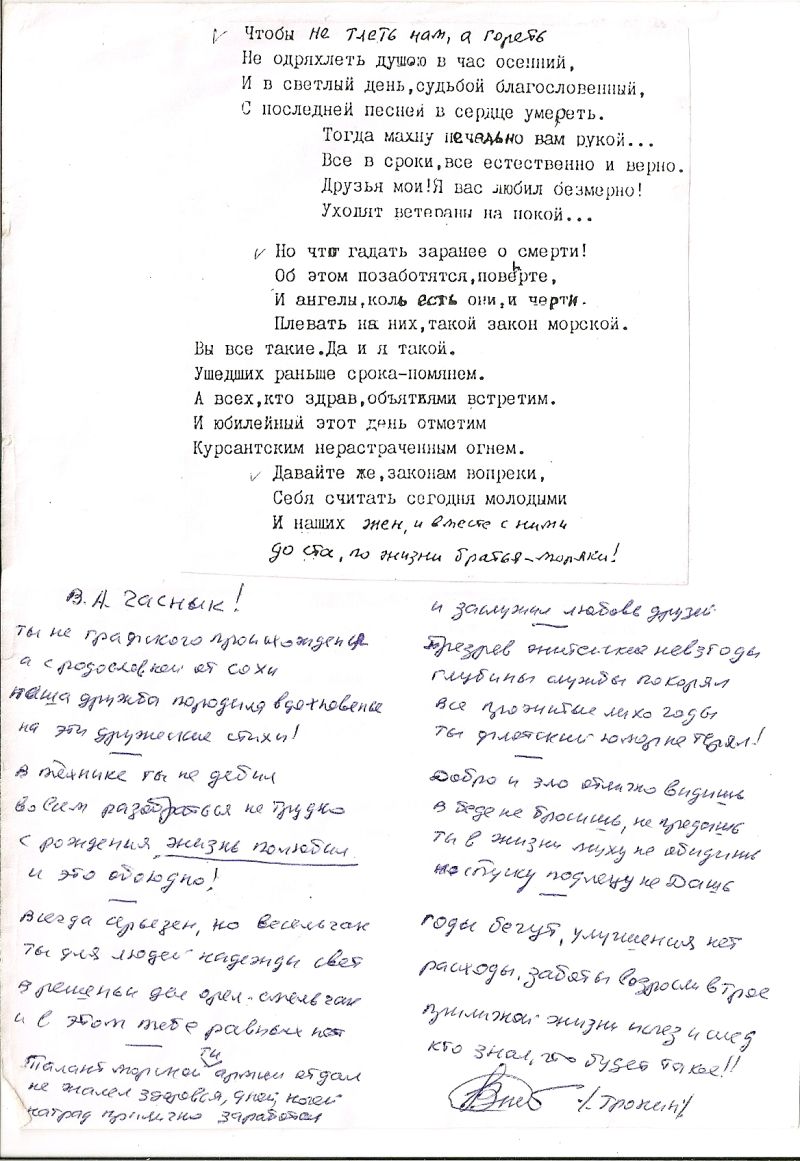 Чтобы не тлеть нам, а гореть
Не одряхлеть душою в час осенний,
И в светлый день,судьбой благословенный,
С последней песней в сердце умереть.
Тогда махну печально вам рукой...
Все в сроки,все естественно и верно.
Друзья мои!Я вас любил безмерно!
Уходят ветераны на покой...
Но что гадать заранее о смерти!
Об этом позаботятся,поверьте,
И ангелы,коль есть они,и черти.
Плевать на них,такой закон морской.
Вы все такие.Да и я такой.
Ушедших раньше срока-помянем.
А всех,кто здрав,объятиями встретим.
И юбилейный этот день отметим
Курсантским нерастраченным огнем.
Давайте же,законам вопреки,
Себя считать сегодня молодыми
И наших жен, и вместе с ними
до ста, по жизни братья-моряки!
В.А. Часнык!
ты не графского происхожденья
а с родословной от сохи
наша дружба породила вдохновенье
на эти дружеские стихи!
в технике ты не дебил
во всем разобраться не трудно
с рождения, жизнь полюбил
и это обоюдно!
всегда серьезен, но весельчак
ты для людей надежды свет
в решеньи дел орел-смельчак
и в этом тебе равных нет
Талант морской ты армии отдал
не жалел здоровья, дней, ночей
наград прилично заработал
и заслужил любовь друзей
Презрев житейские невзгоды
глубины службы покорял
все прожитые лихо годы
ты флотский юмор не терял!
Добро и зло отлично видишь
в беде не бросишь, не предашь
ты в жизни муху не обидишь
но спуску подлецу не дашь
годы бегут, улучшения нет
расходы, заботы возросли втрое
приличной жизни исчез и след
кто знал, что будет такое!!
/Тронин/